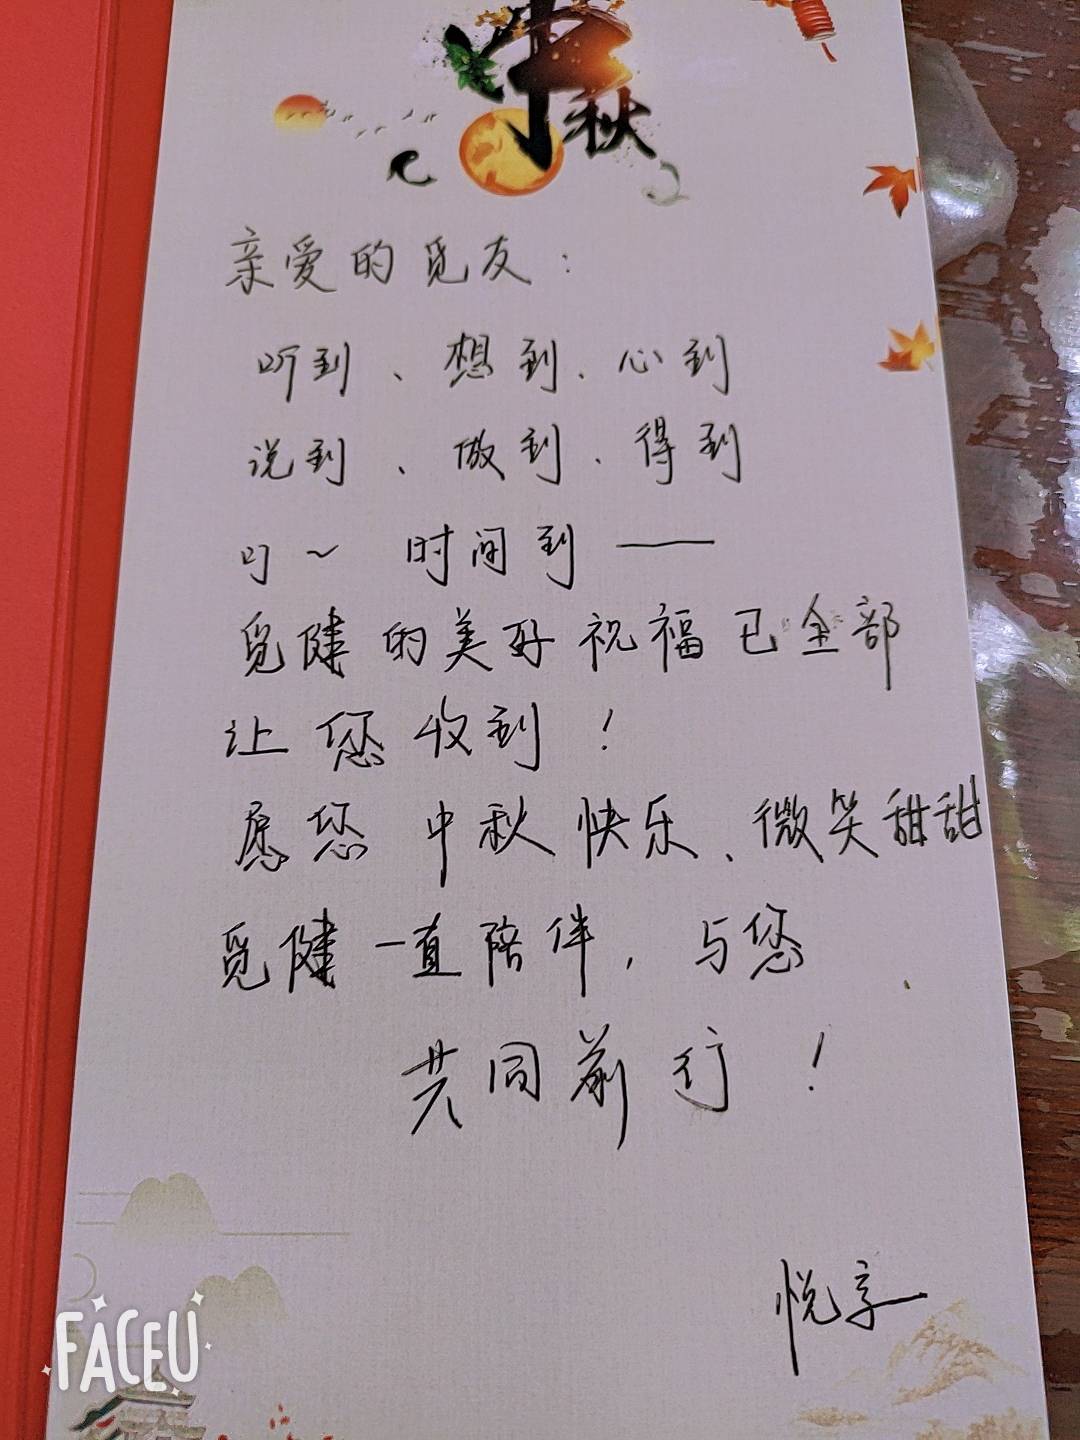 中秋
亲爱的觅友：
听到、想到、心到
说到、做到、得到
叮~ 时间到——
觅健的美好祝福已全部
让您收到！
愿您中秋快乐、微笑甜甜
觅健一直陪伴，与您
共同前行！
悦享
FACEU